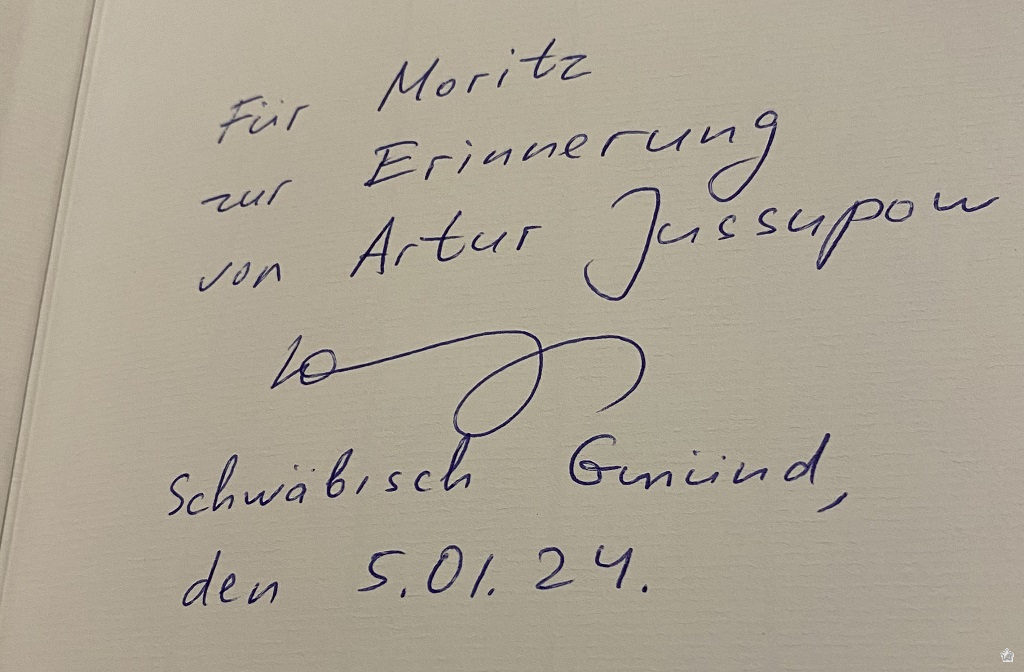 Für Moritz
zur Erinnerung
von Artur Jussupow
Schwäbisch Gmünd,
den 5.01.24.